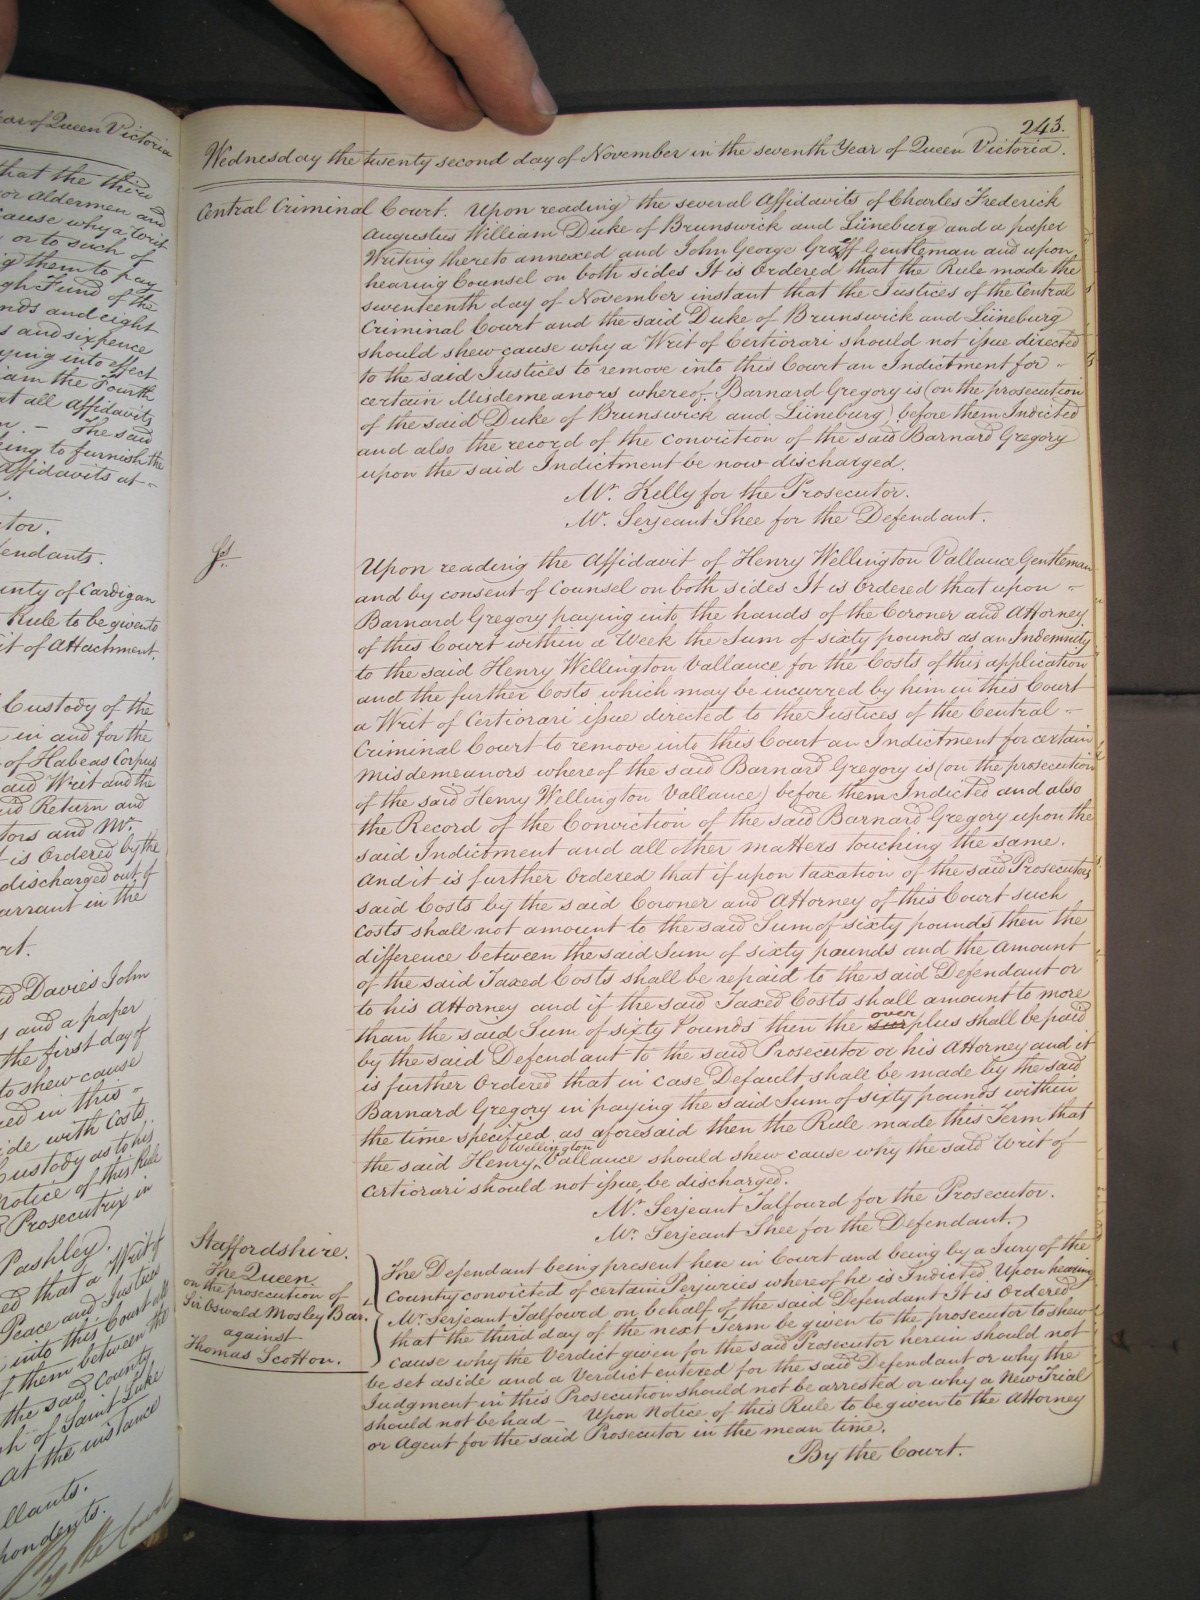 ear of Queen Victoria
that the third
or Aldermen and
cause why a Writ
or to such of
them to pay
gh Fund of the
nds and eight
s and sixpence
ying into effect
iam the Fourth
at all Affidavits
The said
ing to furnish the
Affidavits at
tor.
fendants.
unty of Cardigan
Rule to be given to
it of Attachment.
Custody of the
in and for the
of Habeas Corpus
aid Writ and the
id Return and
tors and Mr.
is Ordered by the
discharged out of
arrant in the
rt.
Davies John
s and a paper
the first day of
to shew cause
ed in this
ide with Costs
Custody as to his
Notice of this Rule
Prosecutrix in
Pashley.
ed that a Writ of
Peace and Justices
into this Court all
of them between the
the said County
h of Saint Luke
at the instance
llants.
pondents.
By the Court
243.
Wednesday the twenty second day of November in the seventh Year of Queen Victoria.
Central Criminal Court. Upon reading the several Affidavits of Charles Frederick
Augustus William Duke of Brunswick and Lüneburg and a paper
Writing thereto annexed and John George Graff Gentleman and upon
hearing Counsel on both sides It is Ordered that the Rule made the
seventeenth day of November instant that the Justices of the Central
Criminal Court and the said Duke of Brunswick and Lüneburg
should shew cause why a Writ of Certiorari should not issue directed
to the said Justices to remove into this Court an Indictment for
certain Misdemeanors whereof Barnard Gregory is (on the prosecution
of the said Duke of Brunswick and Lüneburg) before them Indicted
and also the record of the conviction of the said Barnard Gregory
upon the said Indictment be now discharged.
Mr. Kelly for the Prosecutor.
Mr. Serjeant Shee for the Defendant.
Upon reading the Affidavit of Henry Wellington Vallance Gentleman
and by consent of Counsel on both sides It is Ordered that upon
Barnard Gregory paying into the hands of the Coroner and Attorney
of this Court within a Week the Sum of sixty pounds as an Indemnity
to the said Henry Wellington Vallance for the Costs of this application
and the further Costs which may be incurred by him in this Court
a Writ of Certiorari issue directed to the Justices of the Central
Criminal Court to remove into this Court an Indictment for certain
Misdemeanors whereof the said Barnard Gregory is (on the prosecution
of the said Henry Wellington Vallance) before them Indicted and also
the Record of the Conviction of the said Barnard Gregory upon the
said Indictment and all other matters touching the same.
And it is further Ordered that if upon taxation of the said Prosecutors
said Costs by the said Coroner and Attorney of this Court such
Costs shall not amount to the said Sum of sixty pounds then the
difference between the said Sum of sixty pounds and the Amount
of the said Taxed Costs shall be repaid to the said Defendant or
to his Attorney and if the said Taxed Costs shall amount to more
than the said Sum of sixty Pounds then the sur overplus shall be paid
by the said Defendant to the said Prosecutor or his Attorney and it
is further Ordered that in case Default shall be made by the said
Barnard Gregory in paying the said Sum of sixty pounds within
the time specified as aforesaid then the Rule made this Term that
the said Henry Wellington Vallance should shew cause why the said Writ of
Certiorari should not issue, be discharged.
Mr. Serjeant Talfourd for the Prosecutor.
Mr. Serjeant Shee for the Defendant.
Staffordshire.
The Queen
on the prosecution of
Sir Oswald Mosley Bar.
against
Thomas Scotton.
The Defendant being present here in Court and being by a Jury of the
County convicted of certain Perjuries whereof he is Indicted Upon hearing
Mr. Serjeant Talfourd on behalf of the said Defendant It is Ordered
that the third day of the next Term be given to the prosecutor to shew
cause why the Verdict given for the said Prosecutor herein should not
be set aside and a Verdict entered for the said Defendant or why the
Judgment in this Prosecution should not be arrested or why a New Trial
should not be had — Upon Notice of this Rule to be given to the Attorney
or Agent for the said Prosecutor in the mean time.
By the Court.